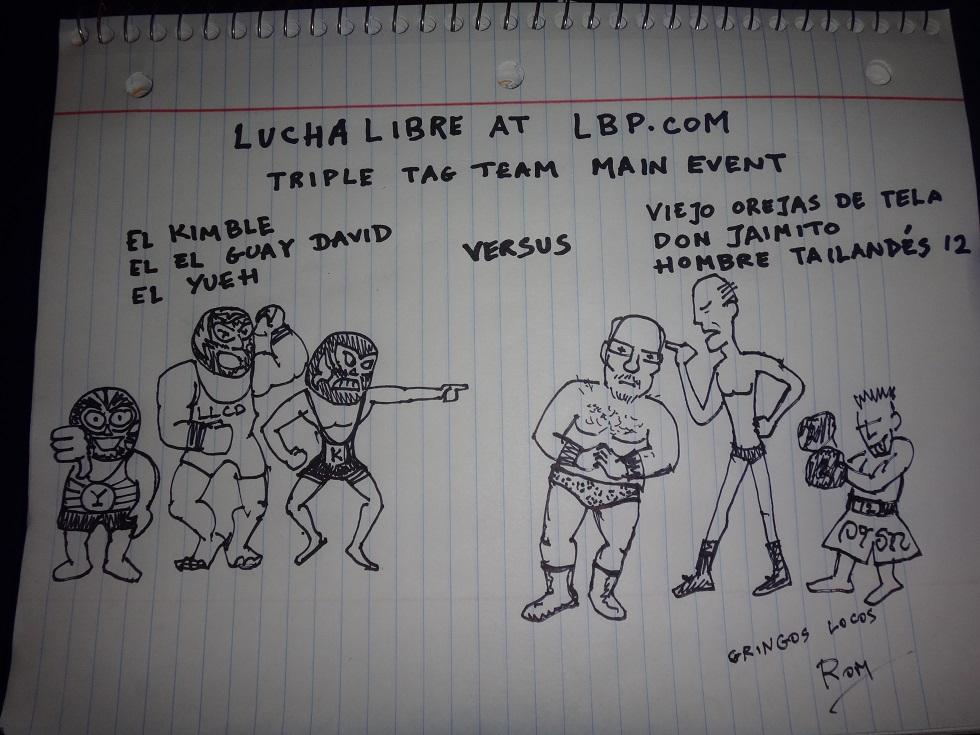 LUCHA LIBRE AT LBP.COM
TRIPLE TAG TEAM MAIN EVENT
EL KIMBLE
EL EL GUAY DAVID
EL YUEH
VERSUS
VIEJO OREJAS DE TELA
DON JAIMITO
HOMBRE TAILANDÉS 12
Y
K
GRINGOS LOCOS
ROM